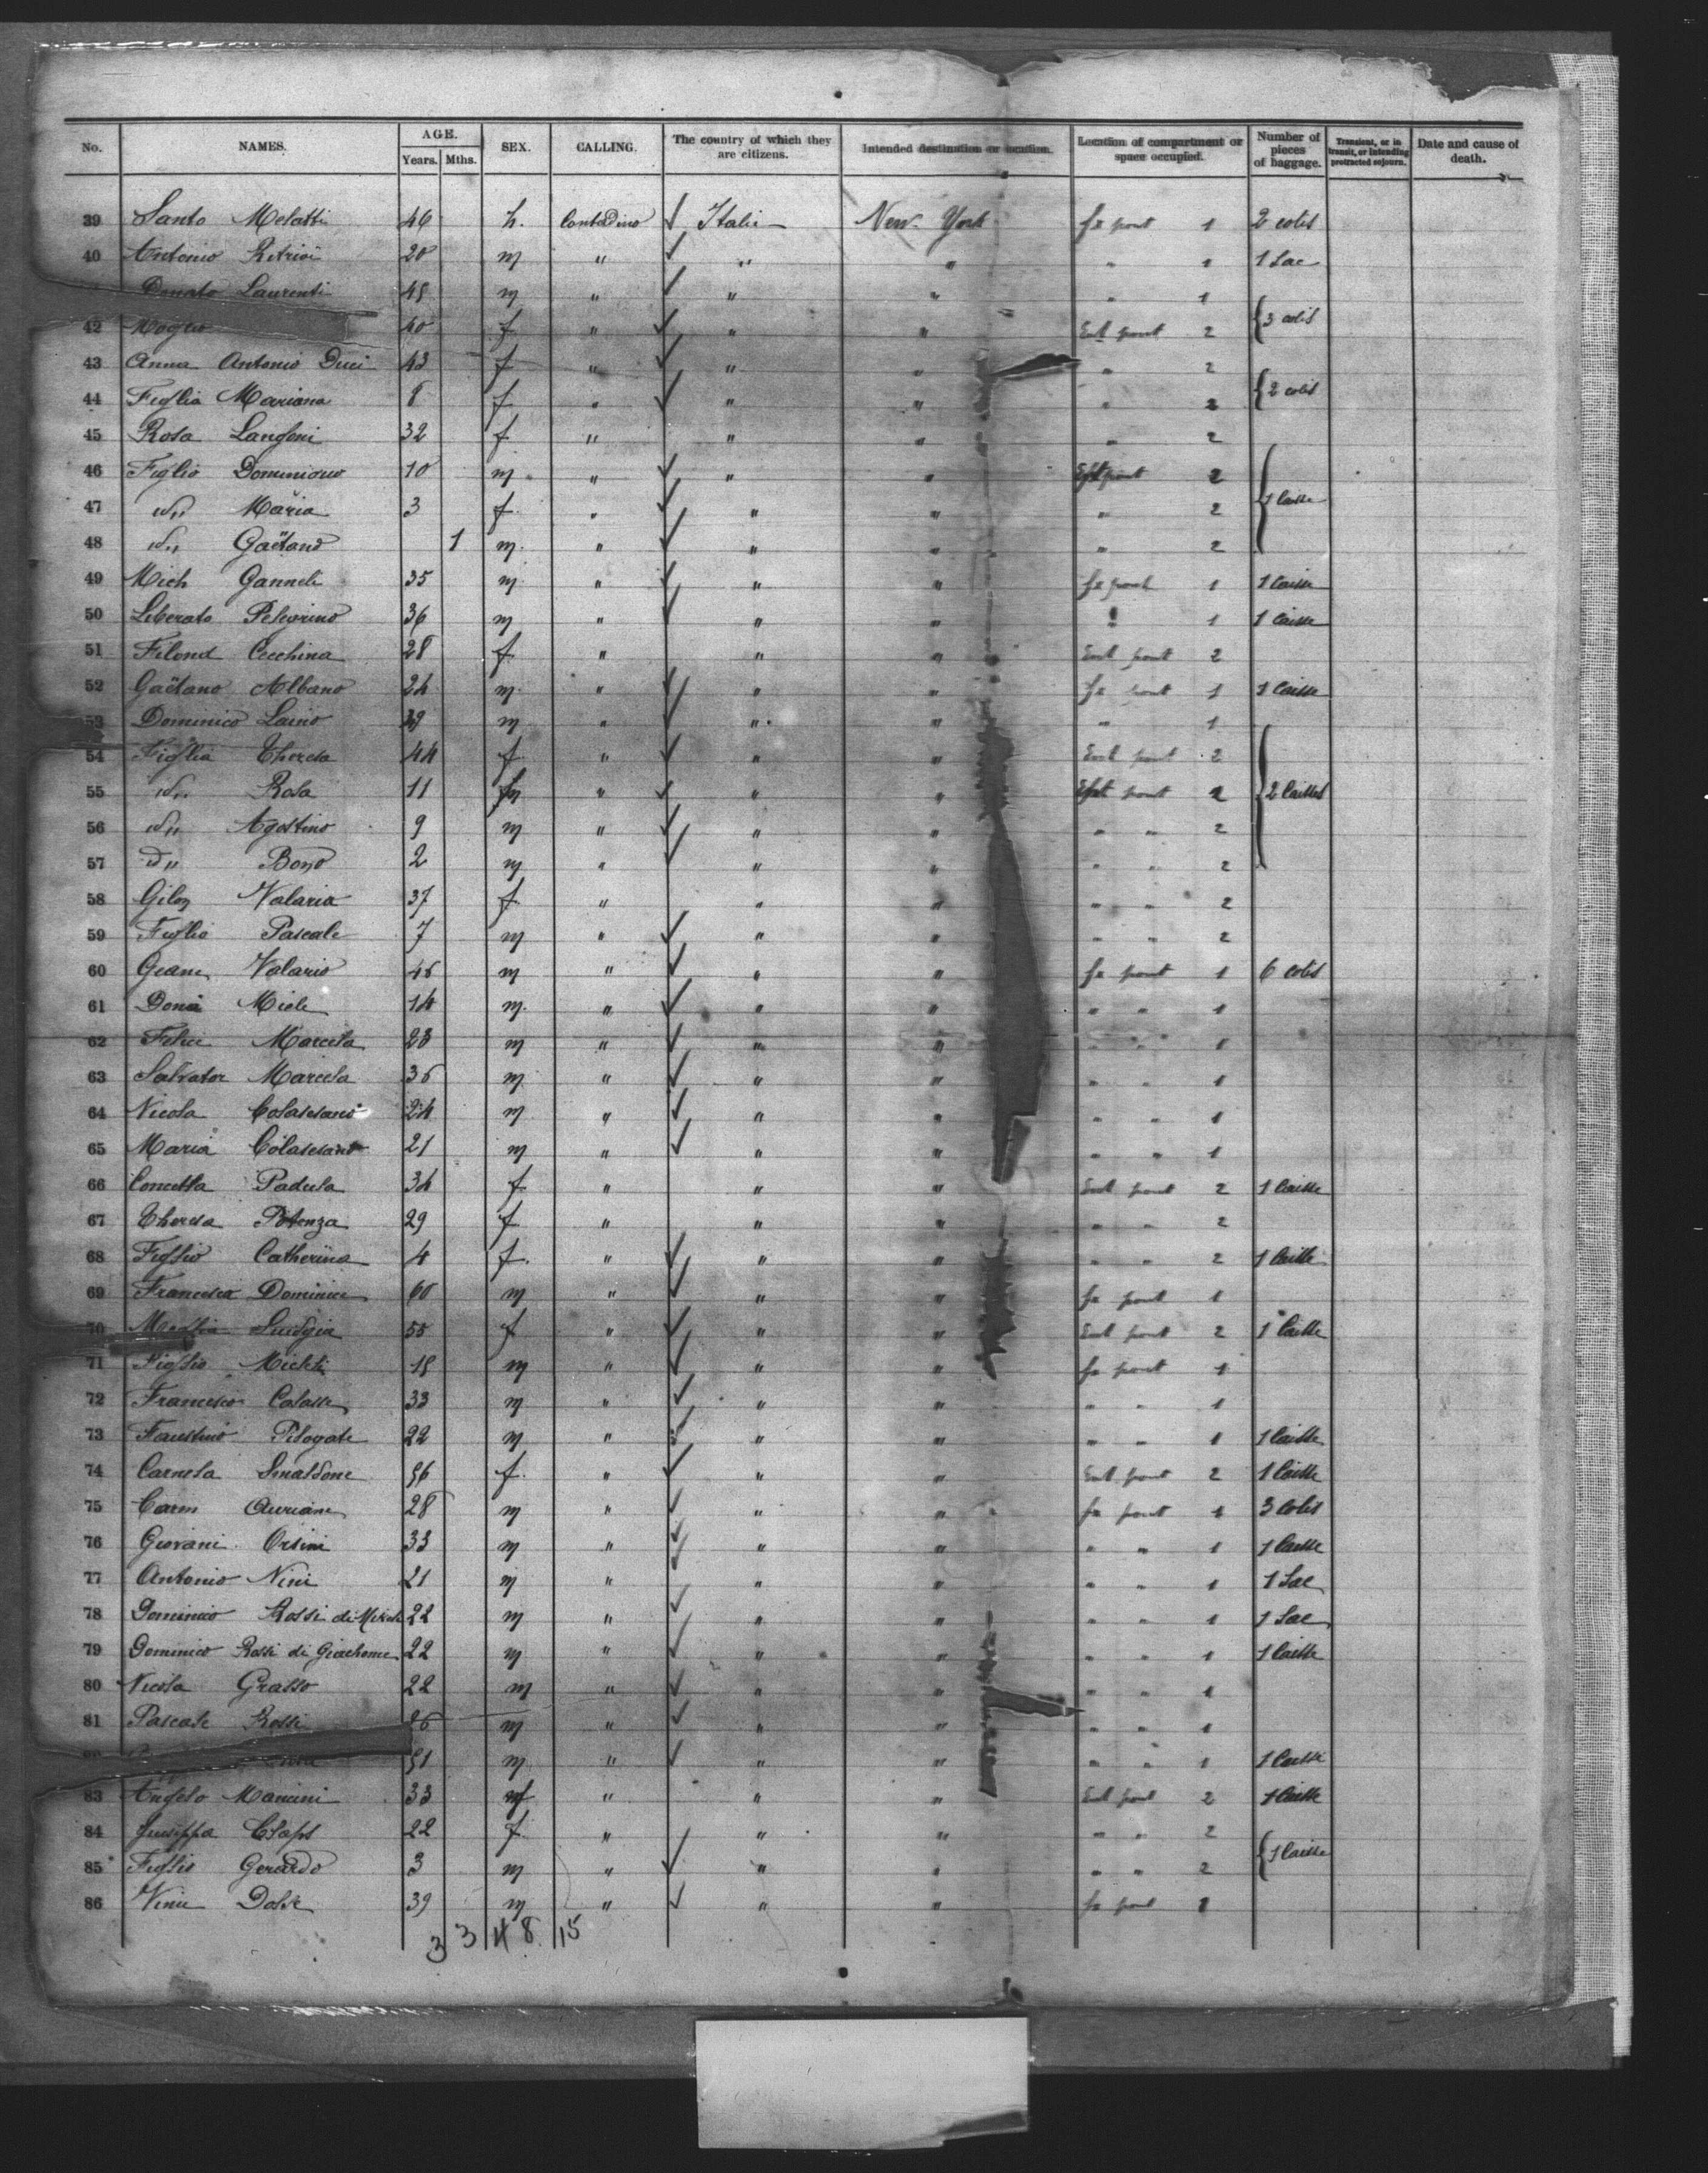 No. NAMES. AGE. Years. Mths. SEX. CALLING. The country of which they are citizens. Intended destination or location. Location of compartment or space occupied. Number of pieces of baggage. Transient, or in transit, or intending protracted sojourn. Date and cause of death.
39 Santo Melatti 46 Contadino Italie New York 1 2 colis
40 Antonio 20 m " " " " 1 1 Sac
Donato Laurenti 45 m " " " " 1
42 Moglie 40 f " " " Ent pont 2 3 colis
43 Anna Antonio Duci 43 f " " " " 2
44 Figlia Mariana 8 f " " " " 2 2 colis
45 Rosa Langoni 32 f " " " " 2
46 Figlio Dominico 10 m " " " Ent pont 2
47 id. Maria 3 f " " " " 2 1 Caisse
48 id. Gaëtano 1 m " " " " 2
49 Mich Ganneli 35 m " " " pont 1 1 Caisse
50 Liberato Pelegrino 36 m " " " " 1 1 Caisse
51 Cecchina 28 f " " " Ent pont 2
52 Gaëtano Albano 24 m " " " pont 1 1 Caisse
53 Dominico Laino m " " " " 1
54 Figlia Theresa 44 f " " " Ent pont 2
55 id. Rosa 11 " " " Ent pont 2 2 Caisses
56 id. Agostino 9 m " " " " " 2
57 d" 2 m " " " " " 2
58 Valaria 37 f " " " " " 2
59 Figlio Pascale 7 m " " " " " 2
60 Valario 45 m " " " pont 1 6 colis
61 Miele 14 m " " " " " 1
62 Felice Marcela 23 m " " " " " 1
63 Salvator Marcela 35 m " " " " " 1
64 Nicola Colassano 24 m " " " " " 1
65 Maria Colassano 21 m " " " " " 1
66 Concetta Padula 34 f " " " Ent pont 2 1 Caisse
67 Theresa Potenza 29 f " " " " " 2
68 Figlio Catherina 4 f " " " " " 2 1 Caisse
69 Francesca Dominica 60 m " " " pont 1
70 55 f " " " Ent pont 2 1 Caisse
71 Figlio m " " " pont 1
72 Francesco 33 m " " " " " 1
73 Faustino Pilogate 22 m " " " " " 1 1 Caisse
74 Carnela Smaldone f " " " Ent pont 2 1 Caisse
75 Carm Auriane 28 m " " " pont 1 3 colis
76 Giovani Orsini 33 m " " " " " 1 1 Caisse
77 Antonio Nini 21 m " " " " 1 1 Sac
78 Dominico Rossi di 22 m " " " " " 1 1 Sac
79 Dominico Rossi di Giachome 22 m " " " " " 1 1 Caisse
80 Nicola Grasso 22 m " " " " " 1
81 Pascale Rossi 26 m " " " " " 1
m " " " " " 1 1 Caisse
83 Angelo Mancini 33 " " " Ent pont 2 1 Caisse
84 Giuseppa Claps 22 f " " " " " 2
85 Figlio Gerardo 3 m " " " " " 2 1 Caisse
86 39 m " " " pont 1
3 3 4 8 15